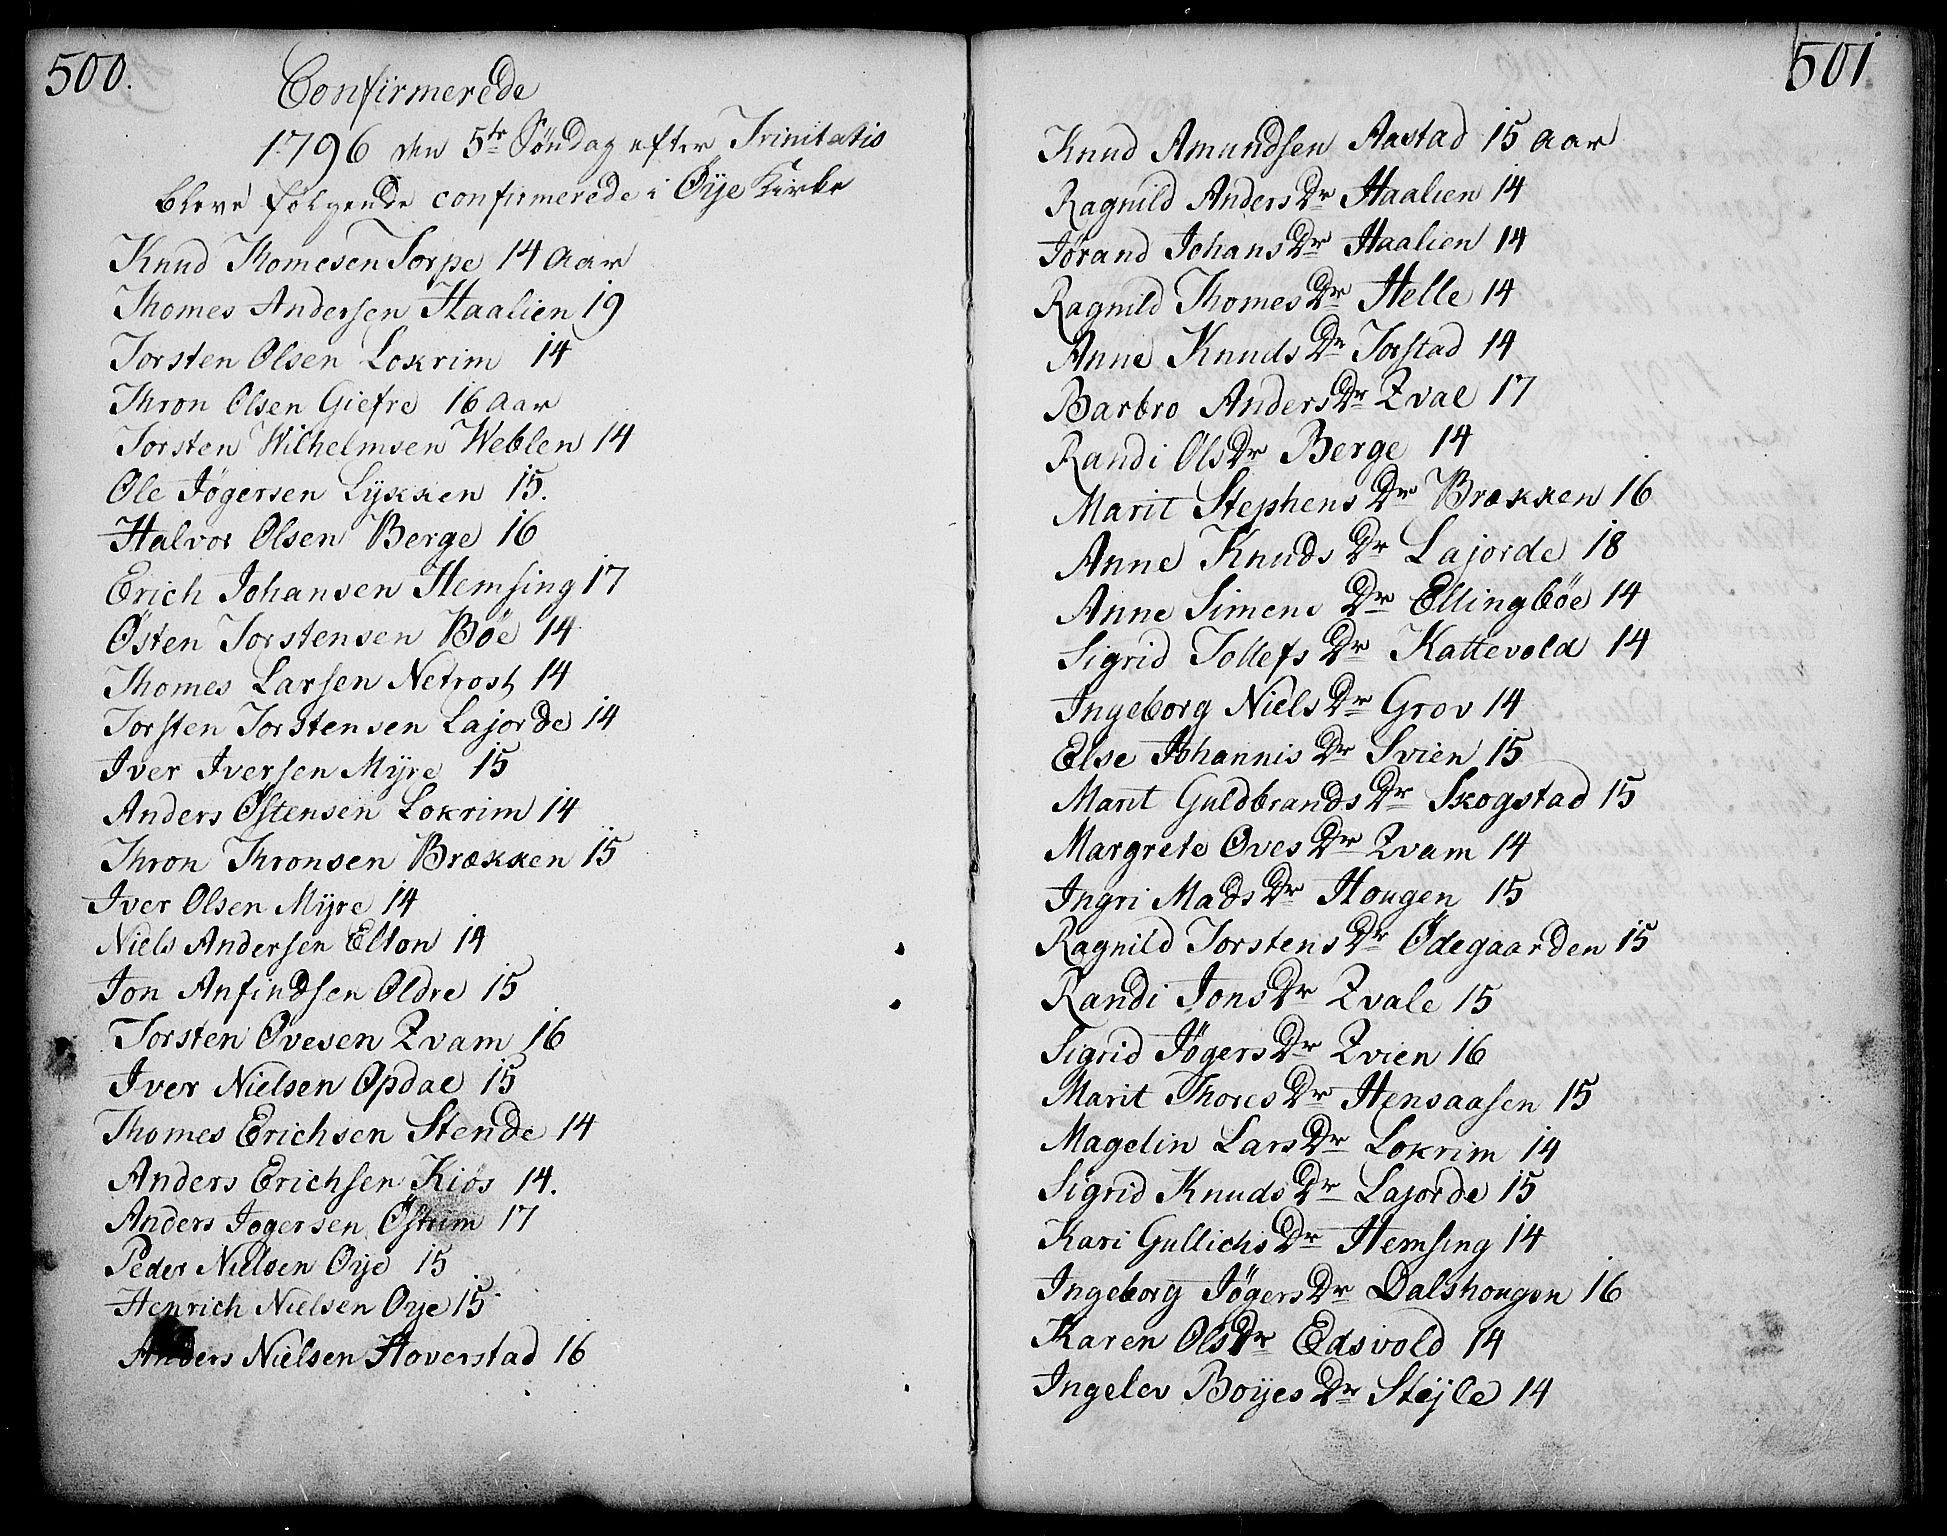 500.
Confirmerede
1796 den 5te Søndag efter Trinitatis
bleve følgende confirmerede i Øije Kirke
Knud Thomesen Torpe 14 aar
Thomes Andersen Haalien 19
Torsten Olsen Lokrim 14
Thron Olsen Giefre 16 aar
Torsten Wilhelmsen Weblen 14
Ole Jøgersen Lykken 15.
Halvor Olsen Berge 16
Erich Johansen Hemsing 17
Østen Torstensen Bøe 14
Thomes Larsen Nefrost 14
Torsten Torstensen Lajorde 14
Iver Iversen Myre 15
Anders Østensen Lokrim 14
Thron Thronsen Brækken 15
Iver Olsen Myre 14
Niels Andersen Elton 14
Jon Anfindsen Oldre 15
Torsten Ovesen Qvam 16
Iver Nielsen Opdal 15
Thomes Erichsen Stende 14
Anders Erichsen Kiøs 14.
Anders Jøgersen Østrim 17
Peder Nielsen Øye 15
Henrich Nielsen Øye 15
Anders Nielsen Hoverstad 16
501
Knud Amundsen Aastad 15 aar
Ragnild Anders Dr Haalien 14
Jørand Johans Dr Haalien 14
Ragnild Thomes Dr Helle 14
Anne Knuds Dr Torstad 14
Barbro Anders Dr Qval 17
Randi Ols Dr Berge 14
Marit Stephens Dr Brækken 16
Anne Knuds Dr Lajorde 18
Anne Simens Dr Ellingbøe 14
Sigrid Tollefs Dr Kattevold 14
Ingeborg Niels Dr Grov 14
Else Johannis Dr Svien 15
Marit Guldbrands Dr Skogstad 15
Margrete Oves Dr Qvam 14
Ingri Mads Dr Hougen 15
Ragnild Torstens Dr Ødegaarden 15
Randi Jons Dr Qvale 15
Sigrid Jøgers Dr Qvien 16
Marit Thores Dr Hensaasen 15
Magelin Lars Dr Lokrim 14
Sigrid Knuds Dr Lajorde 15
Kari Gullichs Dr Hemsing 14
Ingeborg Jøgers Dr Dalshougen 16
Karen Ols Dr Edsvold 14
Ingelev Boyes Dr Stejle 14